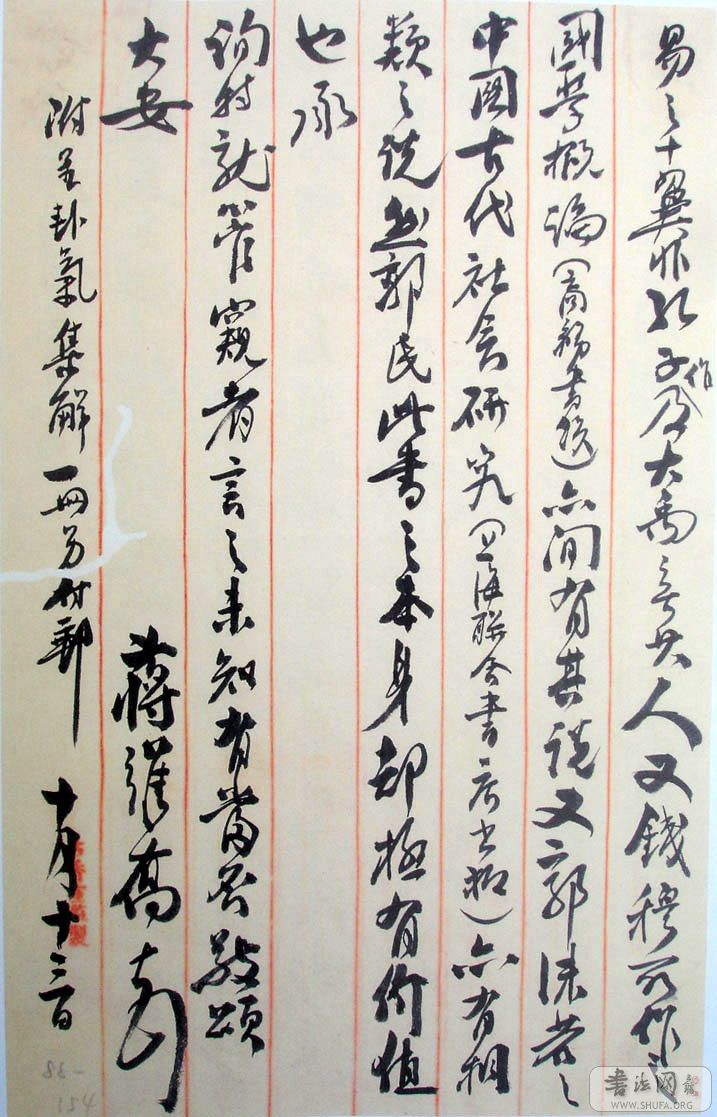 易之十翼非孔子作及大禹無其人又錢穆所作之
國學概論（商務書館）亦間有其說又郭沫若之
中國古代社會研究（上海聯合書店出版）亦有相
類之說然郭氏此書之本身却極有價值
也承
詢特就管窺者言之未知有當否敬頌
大安
蔣維喬
附呈卦氣集解一冊另付郵 十月十三日
83-
154
書法网
WWW.SHUFA.ORG